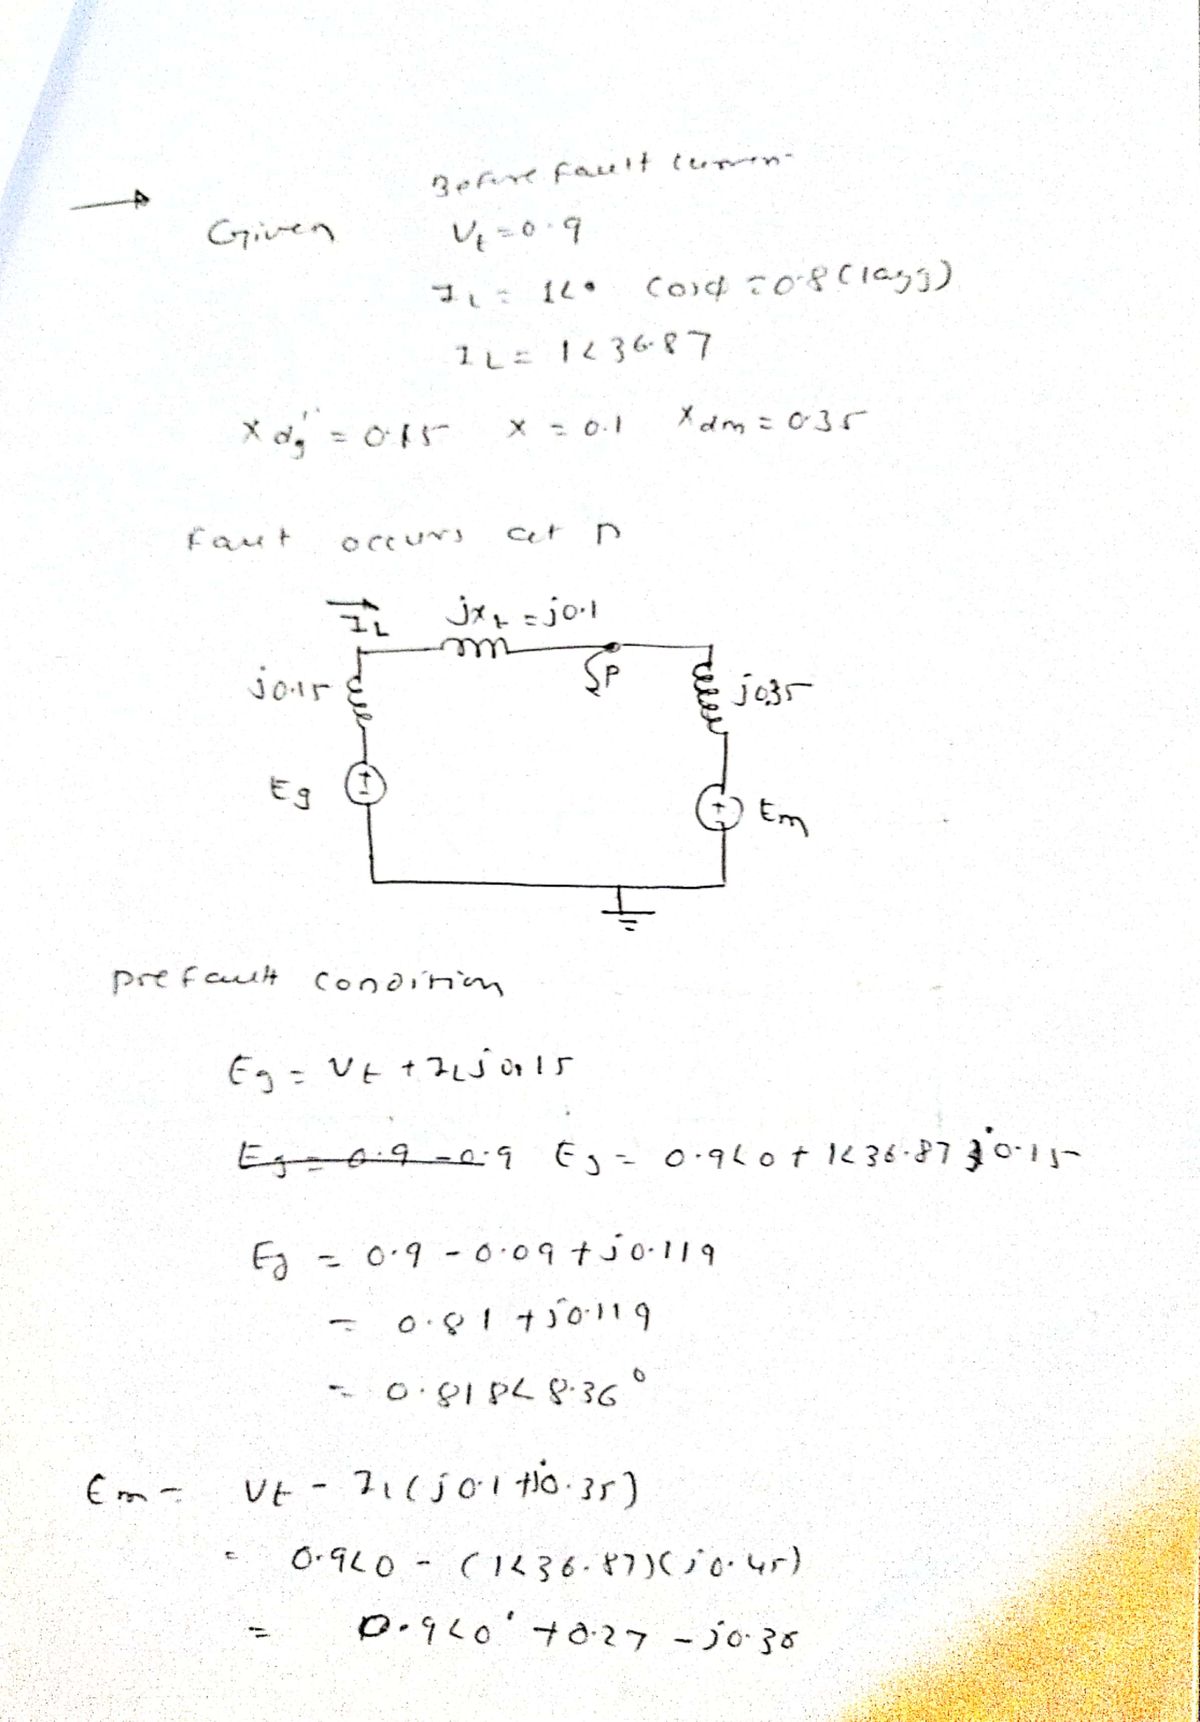 Before fault curren-
Given Vt = 0.9
IL = 1∠0 cosφ = 0.8 (lagg)
IL = 1∠36.87
Xdg'' = 0.15 X = 0.1 Xdm = 0.35
Faut occurs at P
IL jXt = j0.1
P
j0.15 j0.35
Eg Em
prefault condition
Eg = Vt + ILj0.15
Eg = 0.9 - 0.9 Eg = 0.9∠0 + 1∠36.87 j0.15
Eg = 0.9 - 0.09 + j0.119
= 0.81 + j0.119
= 0.818∠8.36°
Em = Vt - IL(j0.1 + j0.35)
= 0.9∠0 - (1∠36.87)(j0.45)
= 0.9∠0° + 0.27 - j0.36